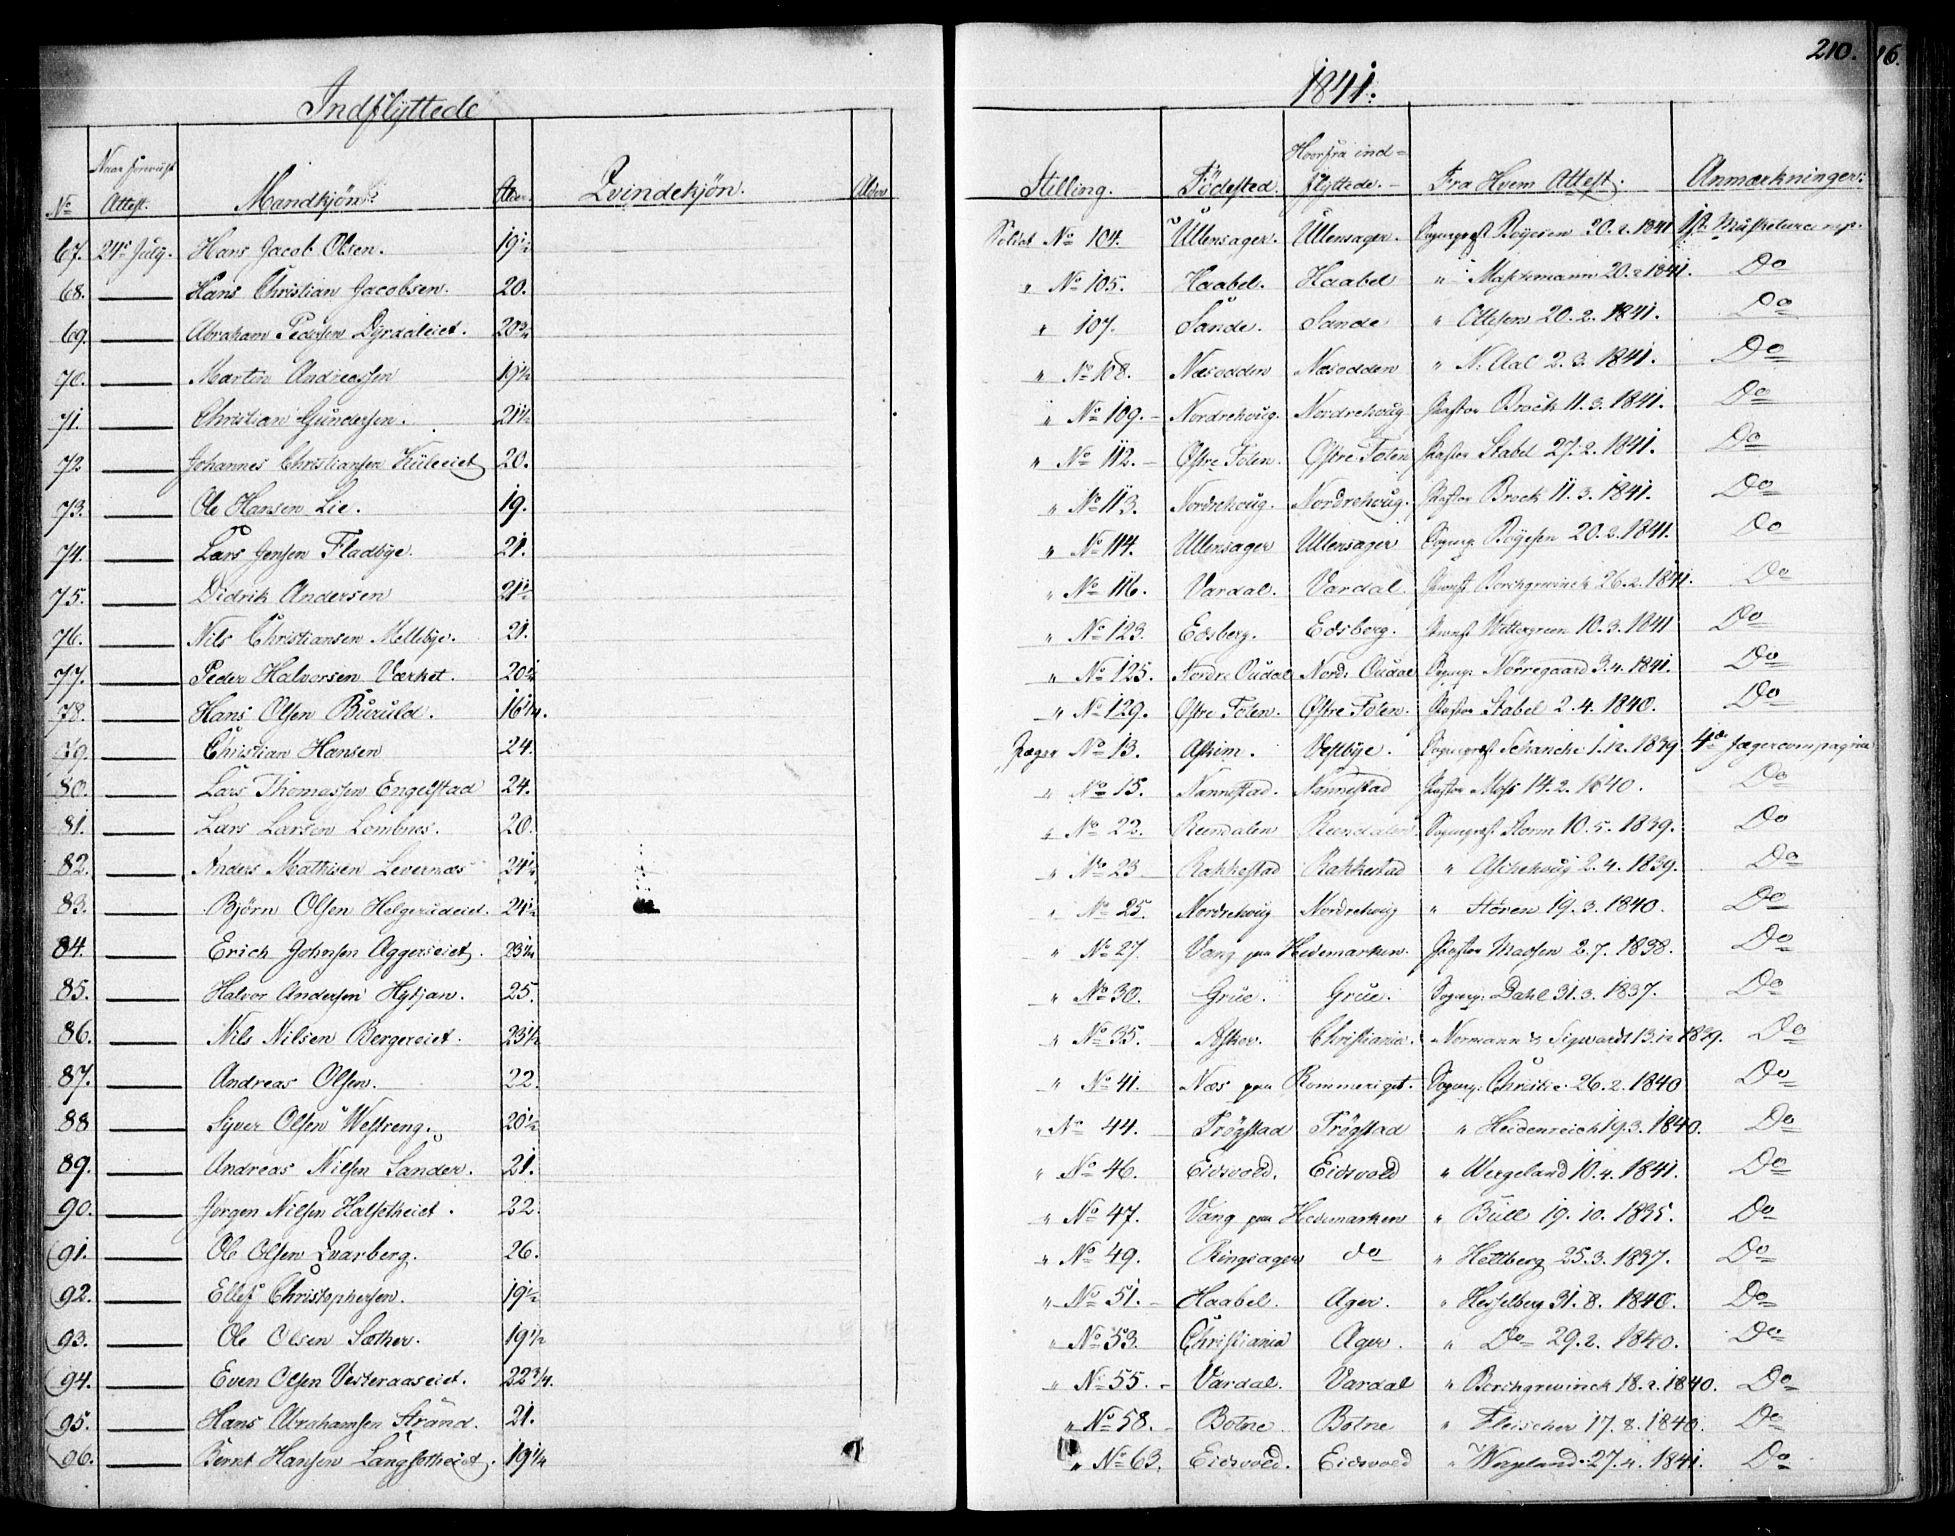 210. 16.
Indflyttede
1841.
No Naar forevist Attest. Mandkjøn. Alder Qvindekjøn. Alder Stilling. Födested. Hvorfra indflyttede. Fra Hvem Attest. Anmærkninger.
67. 24de July. Hans Jacob Olsen. 19½ Soldat No 104. Ullensager. Ullensager. Sognepræst Boyesen 20.2.1841 1ste Musketeercomp.
68. Hans Christian Jacobsen. 20. " No 105. Haabel. Haabel " 20.2.1841. Do
69. Abraham Pedersen Dyrdaleiet. 20¾ " 107. Sande. Sande " Ottesen 20.2.1841. Do
70. Martin Andreassen 19½ " No 108. Næsodden Næsodden " N. Aal 2.3.1841. Do
71. Christian Gundersen. 21½ " No 109. Nordrehoug. Nordrehoug Pastor Brock 11.3.1841. Do
72. Johannes Christiansen Kuleeiet 20. " No 112. Østre Toten. Østre Toten Pastor Stabel 27.2.1841. Do
73. Ole Hansen Lie. 19. " No 113. Nordrehoug. Nordrehoug. Pastor Brock 11.3.1841. Do
74. Lars Jensen Fladbye. 21. " No 114. Ullensager Ullensager Sognep: Boyesen 20.2.1841. Do
75. Didrik Andersen 21½ " No 116. Vardal. Vardal. Provst Borchgrevinck 26.2.1841. Do
76. Nils Christiansen Mellebye. 21. " No 123. Edsberg. Edsberg. Provst Wettergreen 10.3.1841 Do
77. Peder Halvorsen Værket. 20½ " No 125. Nordre Oudal Nordr Oudal Sognep: Nørregaard 3.4.1841. Do
78. Hans Olsen Buruld. 16¼. " No 129. Østre Toten. Østre Toten. Pastor Stabel 2.4.1840. Do
79. Christian Hansen 24. Jæger No 13. Askim. Vestbye. Sognepræst Schanche 1.12.1839 4de Jægercompagnie
80. Lars Thomassen Engelstad 24. " No 15. Nannestad. Nannestad Pastor Moss 14.2.1840. Do
81. Lars Larsen Lombnes. 20. " No 22. Reendalen Reendalen Sognepræst Storm 10.5.1839. Do
82. Anders Mathisen Levernæs 24½ " No 23 Rakkestad Rakkestad " Aschehoug 2.4.1839. Do
83. Bjørn Olsen Helgerudeiet. 24½ " No 25. Nordrehoug Nordrehoug " Støren 19.3.1840. Do
84. Erich Johnsen Aggerseiet. 23¼ " No 27. Vang paa Hedemarken. Pastor Madsen 2.7.1838. Do
85. Halvor Andersen Hytjan. 25. " No 30. Grue. Grue. Sognep: Dahl 31.3.1837. Do
86. Nils Nilsen Bergereiet. 23½ " No 35. Asker. Christiania. Normann & Sigwardt 13.12.1839. Do
87. Andreas Olsen. 22. " No 41. Næs paa Rommeriget. Sognep: Christie. 26.2.1840 Do
88 Syver Olsen Westreng. 20½ " No 44. Trøgstad Trøgstad " Heidenreich 19.3.1840. Do
89. Andreas Nilsen Sander. 21. " No 46. Eidsvold. Eidsvold " Wergeland 10.4.1841. Do
90. Jørgen Nilsen Halsetheiet. 22. " No 47. Vang paa Hedemarken " Bull 19.10.1835. Do
91. Ole Olsen Qvarberg. 26. " No 49. Ringsager do " Heltberg 25.3.1837. Do
92. Ellef Christophersen. 19½ " No 51. Haabel. Ager. " Hesselberg 31.8.1840. Do
93. Ole Olsen Sæther. 19½ " No 53. Christiania Ager. " Do 29.2.1840. Do
94. Even Olsen Vesteraaseiet. 22¾. " No 55. Vardal. Vardal " Borchgrevinck 18.2.1840. Do
95. Hans Abrahamsen Strand. 21. " No 58. Botne Botne " Fleischer 17.8.1840. Do
96. Bernt Hansen Langsetheiet. 19¼ " No 63. Eidsvold. Eidsvold " Wergeland. 27.4.1841. Do